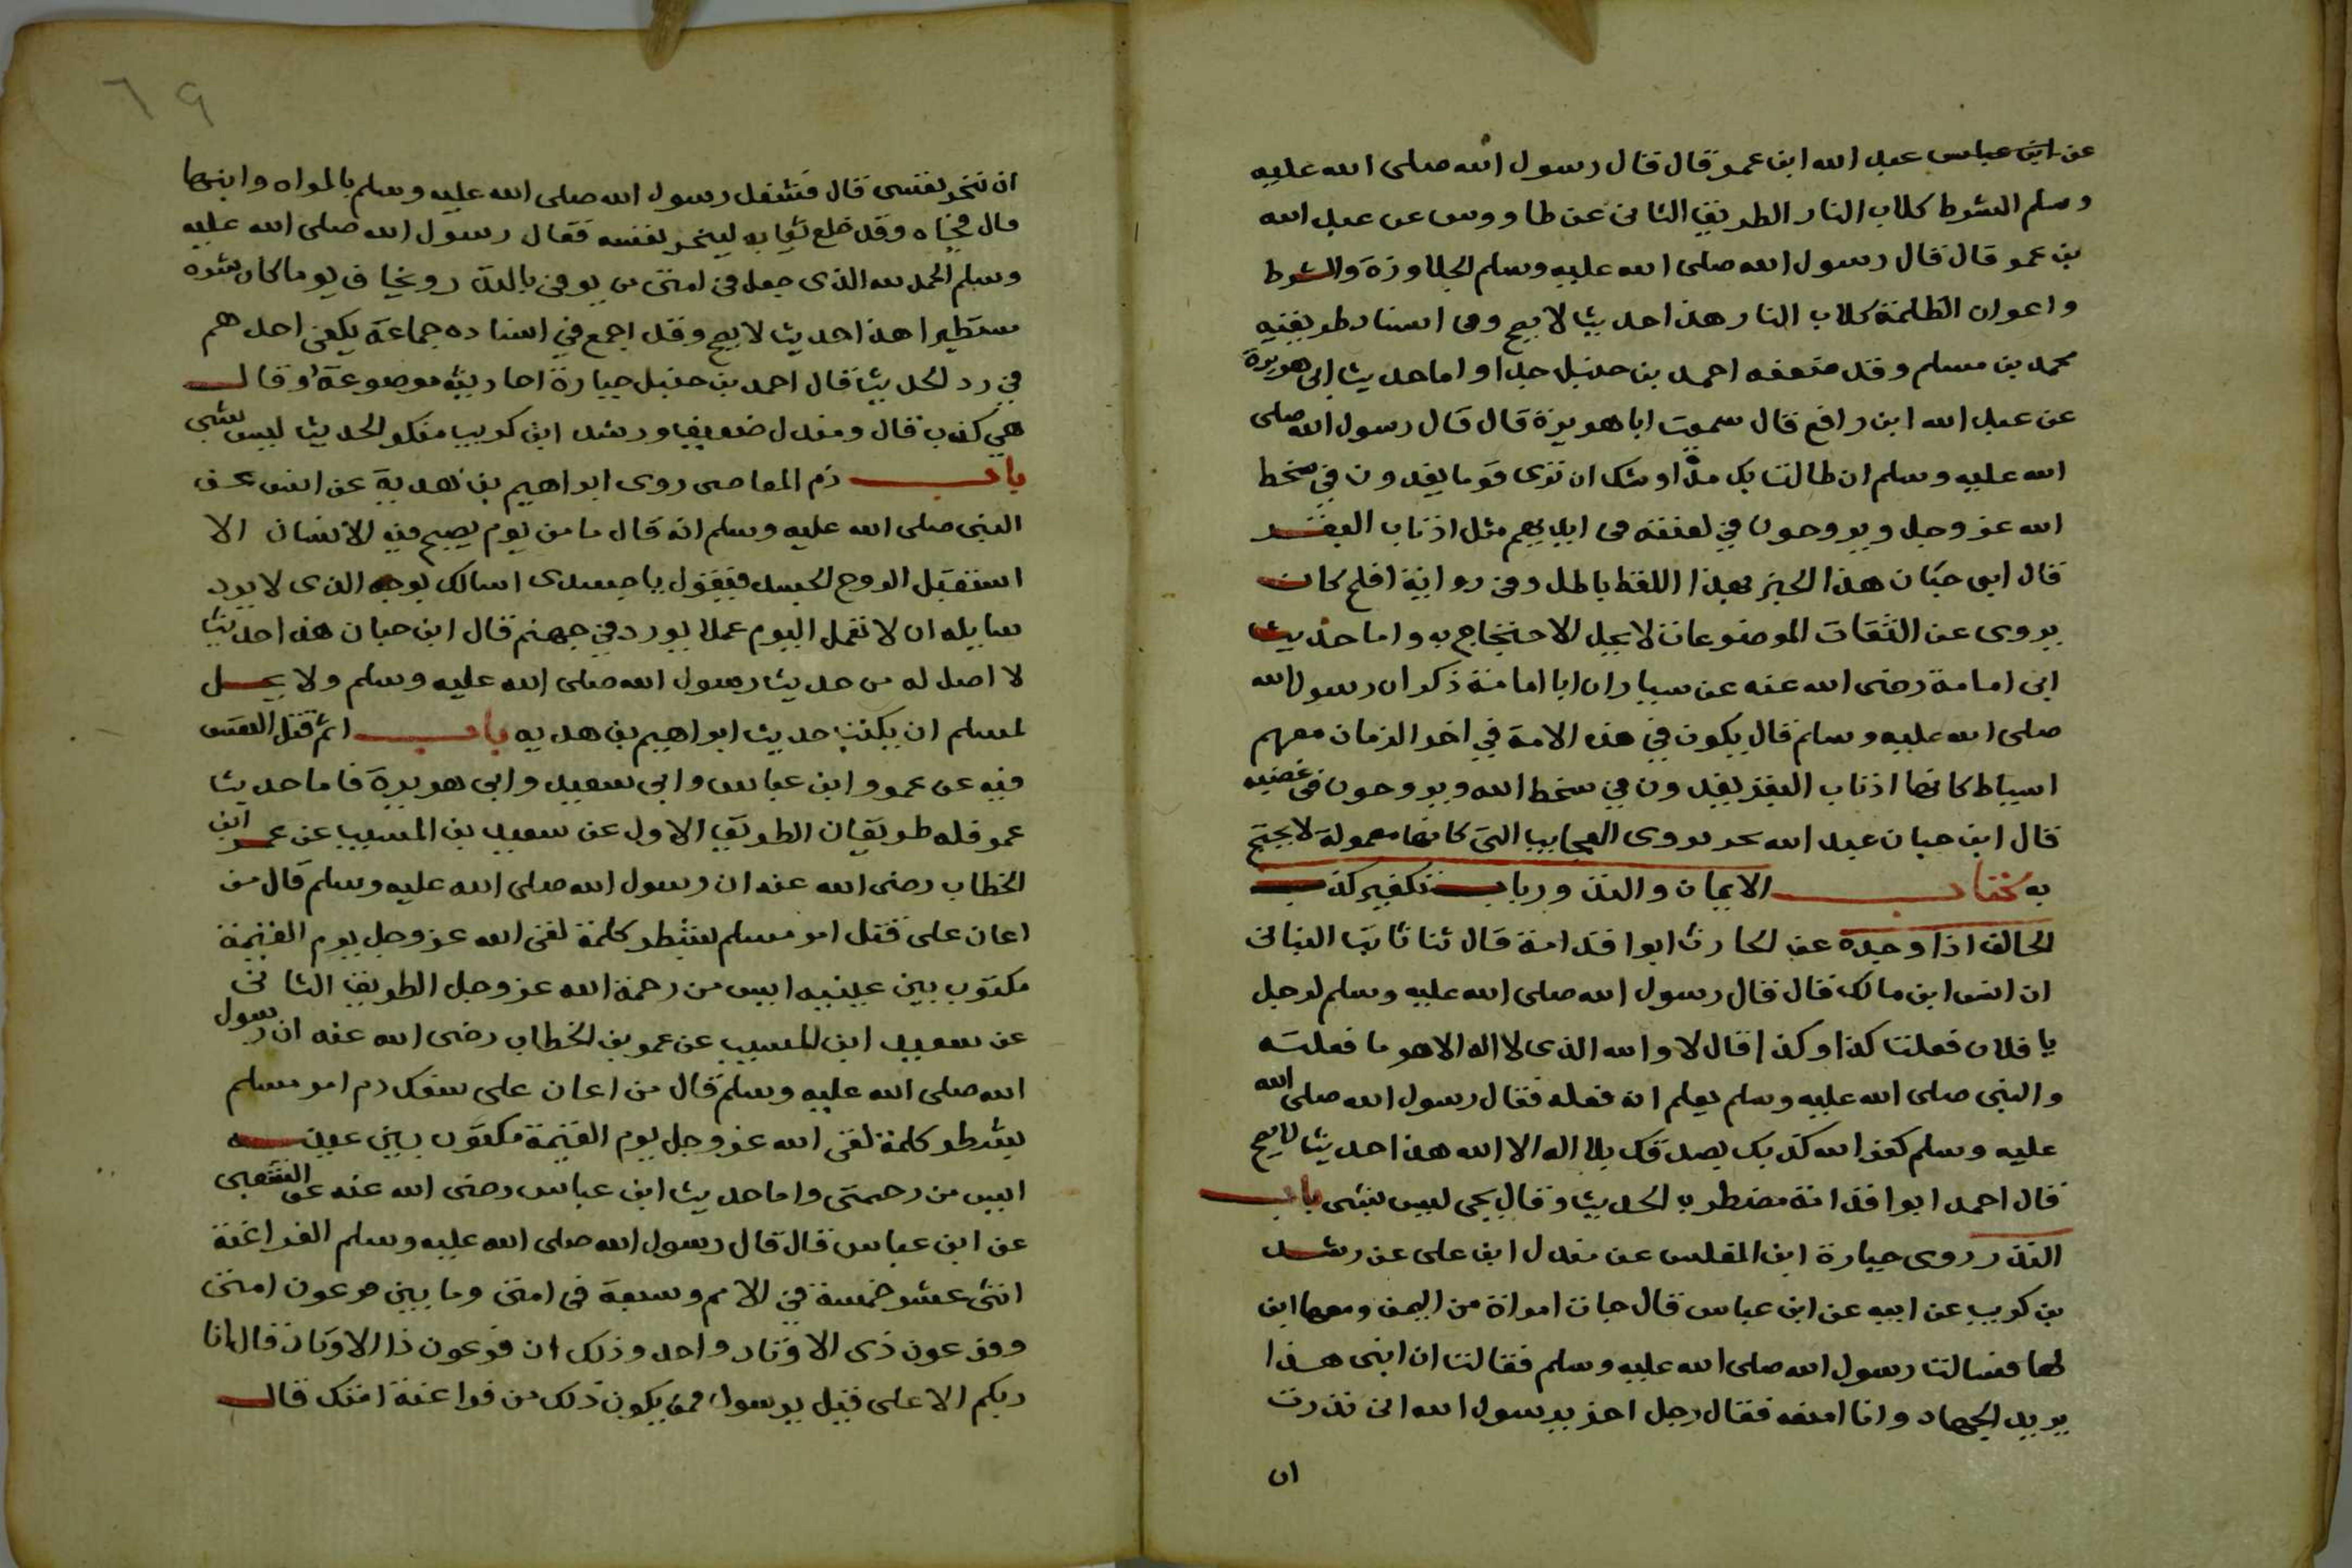 عن ابن عباس عبد الله ابن عمر قال قال رسول الله صلى الله عليه
وسلم الشرط كلاب النار الطريق الثاني عن طاووس عن عبد الله
بن عمر قال قال رسول الله صلى الله عليه وسلم الجلاوزة والشرط
واعوان الظلمة كلاب النار هذا حديث لا يصح وفى اسناد طريقيه
محمد بن مسلم وقد ضعفه احمد بن حنبل جدا واما حديث ابى هريرة
عن عبد الله ابن رافع قال سمعت ابا هريرة قال قال رسول الله صلى
الله عليه وسلم ان طالت بك مدة اوشك ان ترى قوما يغدون في سخط
الله عز وجل ويروحون في لعنته فى ايديهم مثل اذناب البقر
قال ابن حبان هذا الخبر بهذا اللفظ باطل وفى رواية افلح كان
يروى عن الثقات الموضوعات لا يحل الاحتجاج به واما حديث
ابى امامة رضى الله عنه عن سيار ان ابا امامة ذكر ان رسول الله
صلى الله عليه وسلم قال يكون في هذه الامة في اخر الزمان معهم
اسياط كانها اذناب البقر يغدون في سخط الله ويروحون فى غضبه
قال ابن حبان عبد الله يروى العجايب التى كانها معمولة لا يحتج
به كتاب الايمان والنذور باب تكفير كذب
الحالف اذا وحده عن الحارث ابوا قدامة قال ثنا ثابت البنانى
ان انس ابن مالك قال قال رسول الله صلى الله عليه وسلم لرجل
يا فلان فعلت كذا وكذا قال لا والله الذى لا اله الا هو ما فعلته
والنبى صلى الله عليه وسلم يعلم انه فعله فقال رسول الله صلى الله
عليه وسلم كفر الله كذبك بصدقك بلا اله الا الله هذا حديث لا يصح
قال احمد ابوا قدامة مضطرب الحديث وقال يحى ليس بشى باب
النذر روى جبارة ابن المغلس عن مندل ابن على عن رشد
بن كريب عن ابيه عن ابن عباس قال جات امراة من اليمن ومعها ابن
لها فسالت رسول الله صلى الله عليه وسلم فقالت ان ابنى هذا
يريد الجهاد وانا امنعه فقال رجل اخر يرسول الله انى نذرت
ان
٦٩
ان ننحر نفسى قال فشغل رسول الله صلى الله عليه وسلم بالمراه وابنها
قال فجاه وقد خلع ثيابه لينحر نفسه فقال رسول الله صلى الله عليه
وسلم الحمد لله الذى جعل فى امتى من يوفى بالنذر ويخاف يوما كان شره
مستطيرا هذا حديث لا يصح وقد اجمع في اسناده جماعة يكفى احدهم
في رد الحديث قال احمد بن حنبل جبارة احاديثه موضوعة او قال
هي كذب قال ومندل ضعيف ورشد ابن كريب منكر الحديث ليس بشى
باب ذم المعاصى روى ابراهيم بن هدبة عن انس عن
النبى صلى الله عليه وسلم انه قال ما من يوم يصبح فيه الانسان الا
استقبل الروح الجسد فيقول يا جسدى اسالك بوجه الذى لا يرد
سايله ان لا تعمل اليوم عملا يوردنى جهنم قال ابن حبان هذا حديث
لا اصل له من حديث رسول الله صلى الله عليه وسلم ولا يحل
لمسلم ان يكتب حديث ابراهيم بن هدبه باب اثم قتل النفس
فيه عن عمر وابن عباس وابى سعيد وابى هريرة فاما حديث
عمر فله طريقان الطريق الاول عن سعيد بن المسيب عن عمر ابن
الخطاب رضى الله عنه ان رسول الله صلى الله عليه وسلم قال من
اعان على قتل امر مسلم بشطر كلمة لقى الله عز وجل يوم القيمة
مكتوب بين عينيه ايس من رحمة الله عز وجل الطريق الثانى
عن سعيد ابن المسيب عن عمر بن الخطاب رضى الله عنه ان رسول
الله صلى الله عليه وسلم قال من اعان على سفك دم امر مسلم
بشطر كلمة لقى الله عز وجل يوم القيمة مكتوب بين عينيه
ايس من رحمتى واما حديث ابن عباس رضى الله عنه عن الشعبى
عن ابن عباس قال قال رسول الله صلى الله عليه وسلم الفراعنة
اثنى عشر خمسة في الامم وسبعة فى امتى وما بين فرعون امتى
وفرعون ذى الاوتاد واحد وذلك ان فرعون ذا الاوتاد قال انا
ربكم الاعلى قيل يرسول فمن يكون ذلك من فراعنة امتك قال